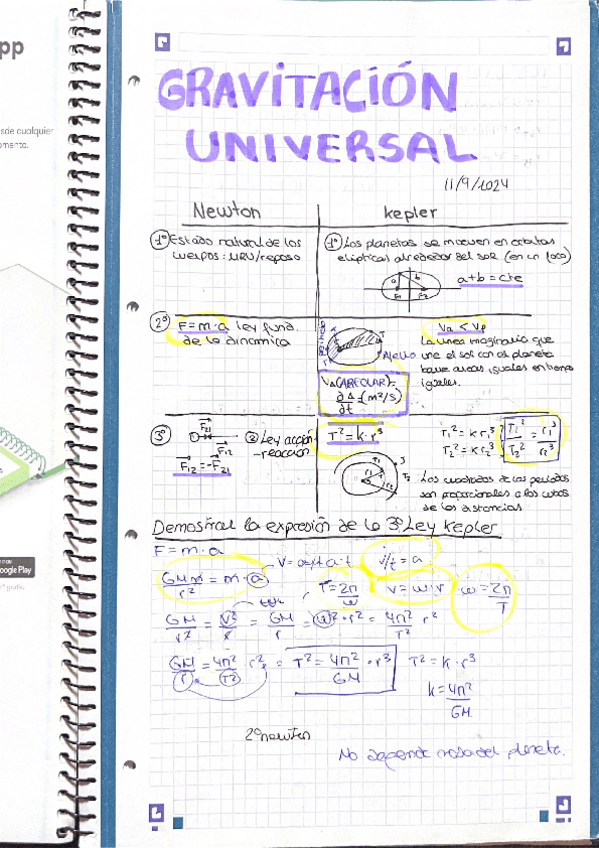 pp
sde cualquier
omento.
Google Play
gratis.
GRAVITACIÓN
UNIVERSAL
11/9/2024
Newton
kepler
1º Estado natural de los
cuerpos: MRU/reposo
1º Los planetas se mueven en orbitas
elípticas alrededor del sol (en un foco)
a b
F1 F2
a+b = cte
2º F=m·a Ley fund.
de la dinamica
Va < Vp
La linea imaginaria que
une el sol con el planeta
barre areas iguales en tiempos
iguales.
VA(AREOLAR)=
∂A = (m²/s)
∂t
3º F21
F12
F12 = -F21
② Ley acción
-reacción
T² = k·r³
T1² = k r1³
T2² = k r2³
T1² = r1³
T2² r2³
T1
T2
r1
r2
Los cuadrados de los periodos
son proporcionales a los cubos
de las distancias
Demostrar la expresión de la 3º Ley kepler
F = m·a
v/t = a
GMm/r² = m·a
T = 2π/ω
v = ω·r
ω = 2π/T
GM/r² = v²/r = GM/r = ω²·r² = 4π²/T² r²
GM/r = 4π²/T² r² = T² = 4π²/GM ·r³
T² = k·r³
k = 4π²/GM
2º newton
No depende masa del planeta.